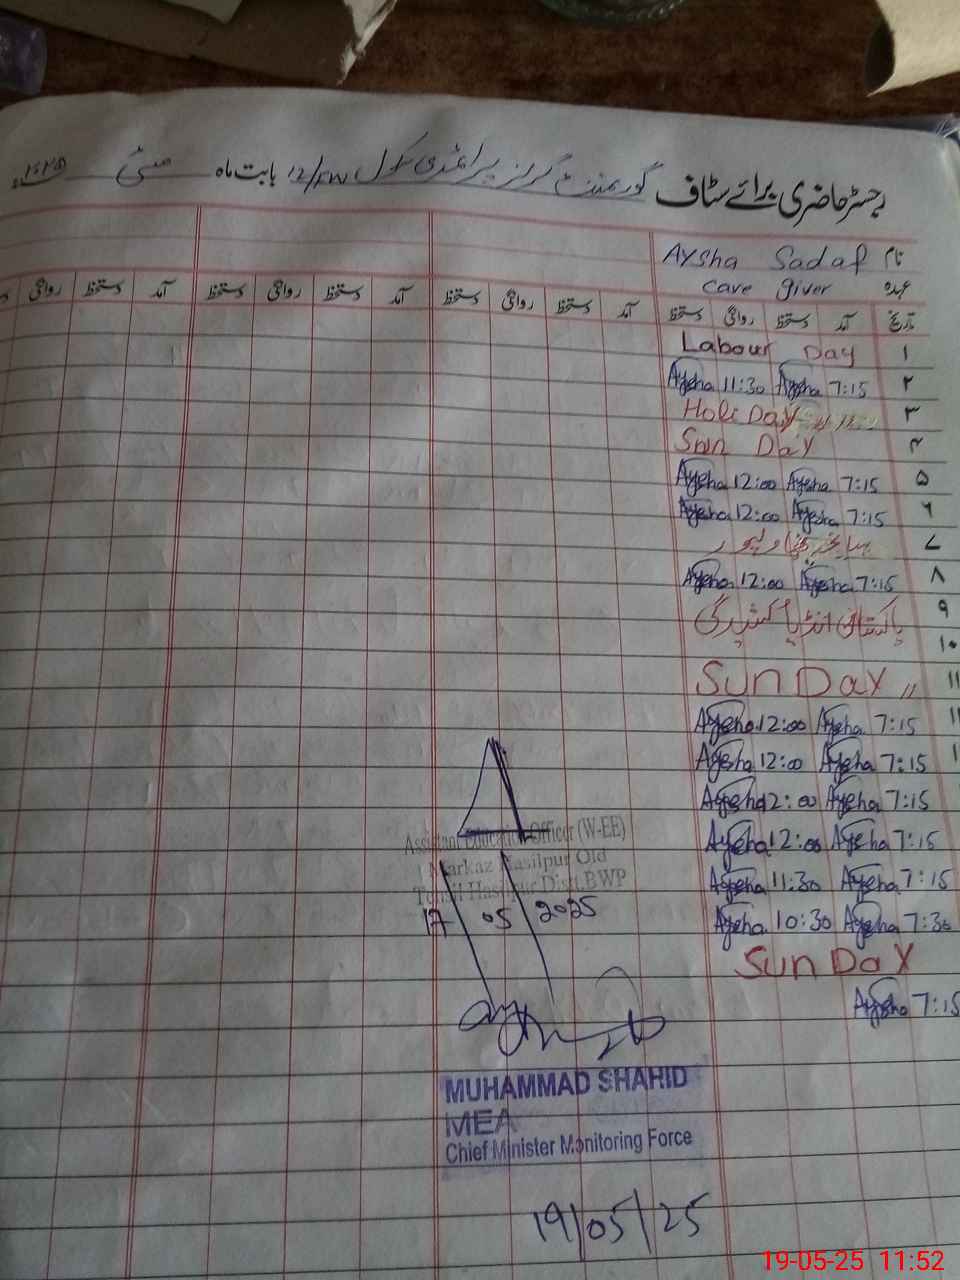 رجسٹر حاضری برائے سٹاف گورنمنٹ گرلز پرائمری سکول 12/FW بابت ماہ مئی ۲۰۲۵ء
نام Aysha Sadaf
عہدہ Care giver
تاریخ آمد دستخط روانگی دستخط آمد دستخط روانگی دستخط آمد دستخط روانگی دستخط آمد دستخط روانگی
۱ Labour Day
۲ 7:15 Aysha 11:30 Aysha
۳ Holi Day
۴ Sun Day
۵ 7:15 Aysha 12:00 Aysha
۶ 7:15 Aysha 12:00 Aysha
۷
۸ 7:15 Aysha 12:00 Aysha
۹ پاکستان انڈیا کشیدگی
۱۰
۱۱ Sun Day "
7:15 Aysha 12:00 Aysha
7:15 Aysha 12:00 Aysha
7:15 Aysha 12:00 Aysha
7:15 Aysha 12:00 Aysha
7:15 Aysha 11:30 Aysha
7:30 Aysha 10:30 Aysha
Sun Day
7:15 Aysha
Assistant Education Officer (W-EE)
Markaz Hasilpur Old
Tehsil Hasilpur Distt.BWP
17 05 2025
MUHAMMAD SHAHID
MEA
Chief Minister Monitoring Force
19/05/25
19-05-25 11:52